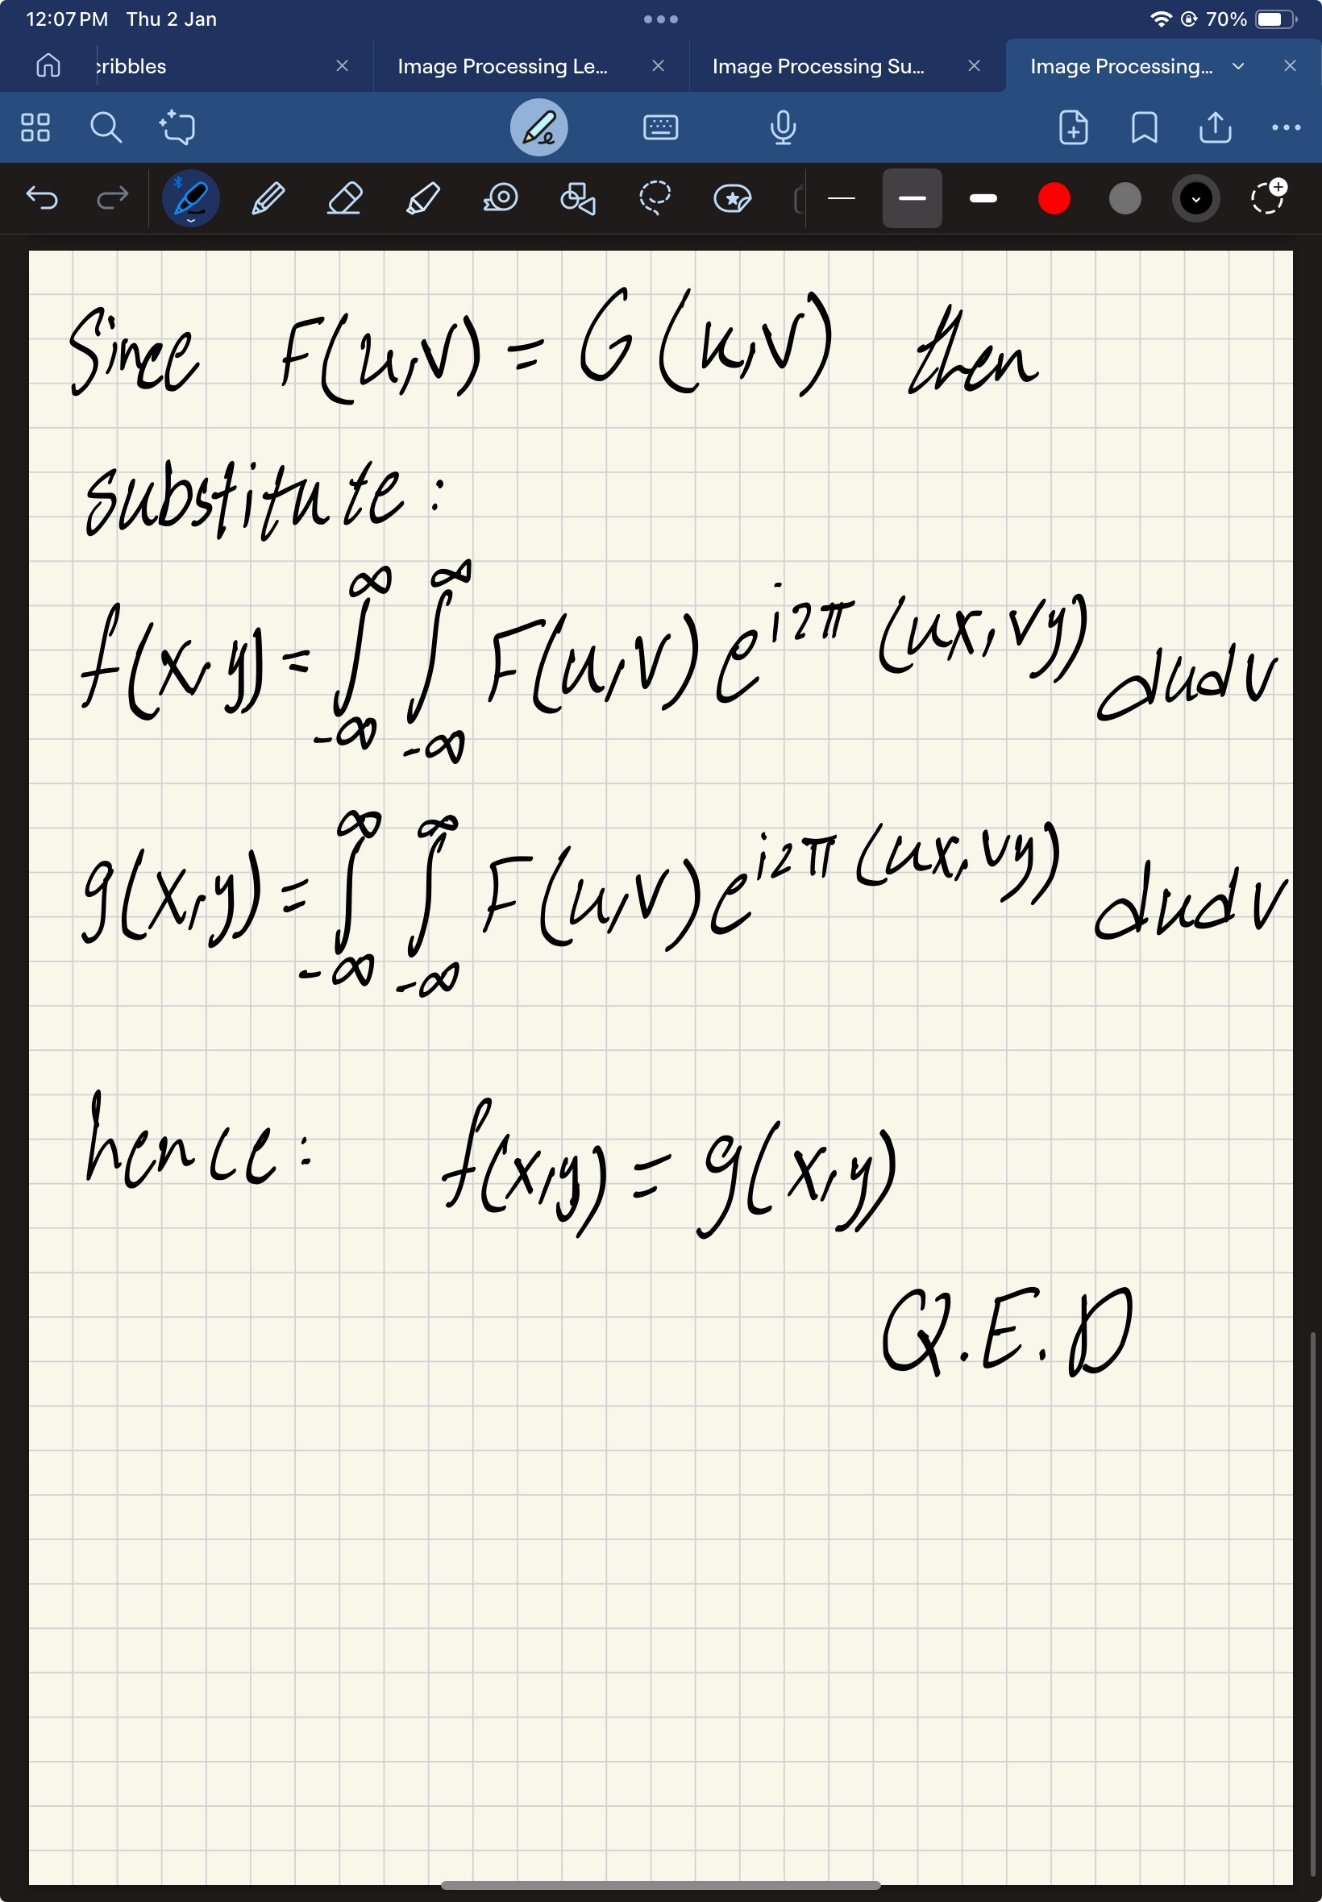 12:07 PM Thu 2 Jan
70%
cribbles
Image Processing Le...
Image Processing Su...
Image Processing...
Since F(u,v) = G(u,v) then
substitute:
f(x,y) = ∫_{-∞}^{∞} ∫_{-∞}^{∞} F(u,v) e^{i2π(ux,vy)} dudv
g(x,y) = ∫_{-∞}^{∞} ∫_{-∞}^{∞} F(u,v) e^{i2π(ux,vy)} dudv
hence: f(x,y) = g(x,y)
Q.E.D